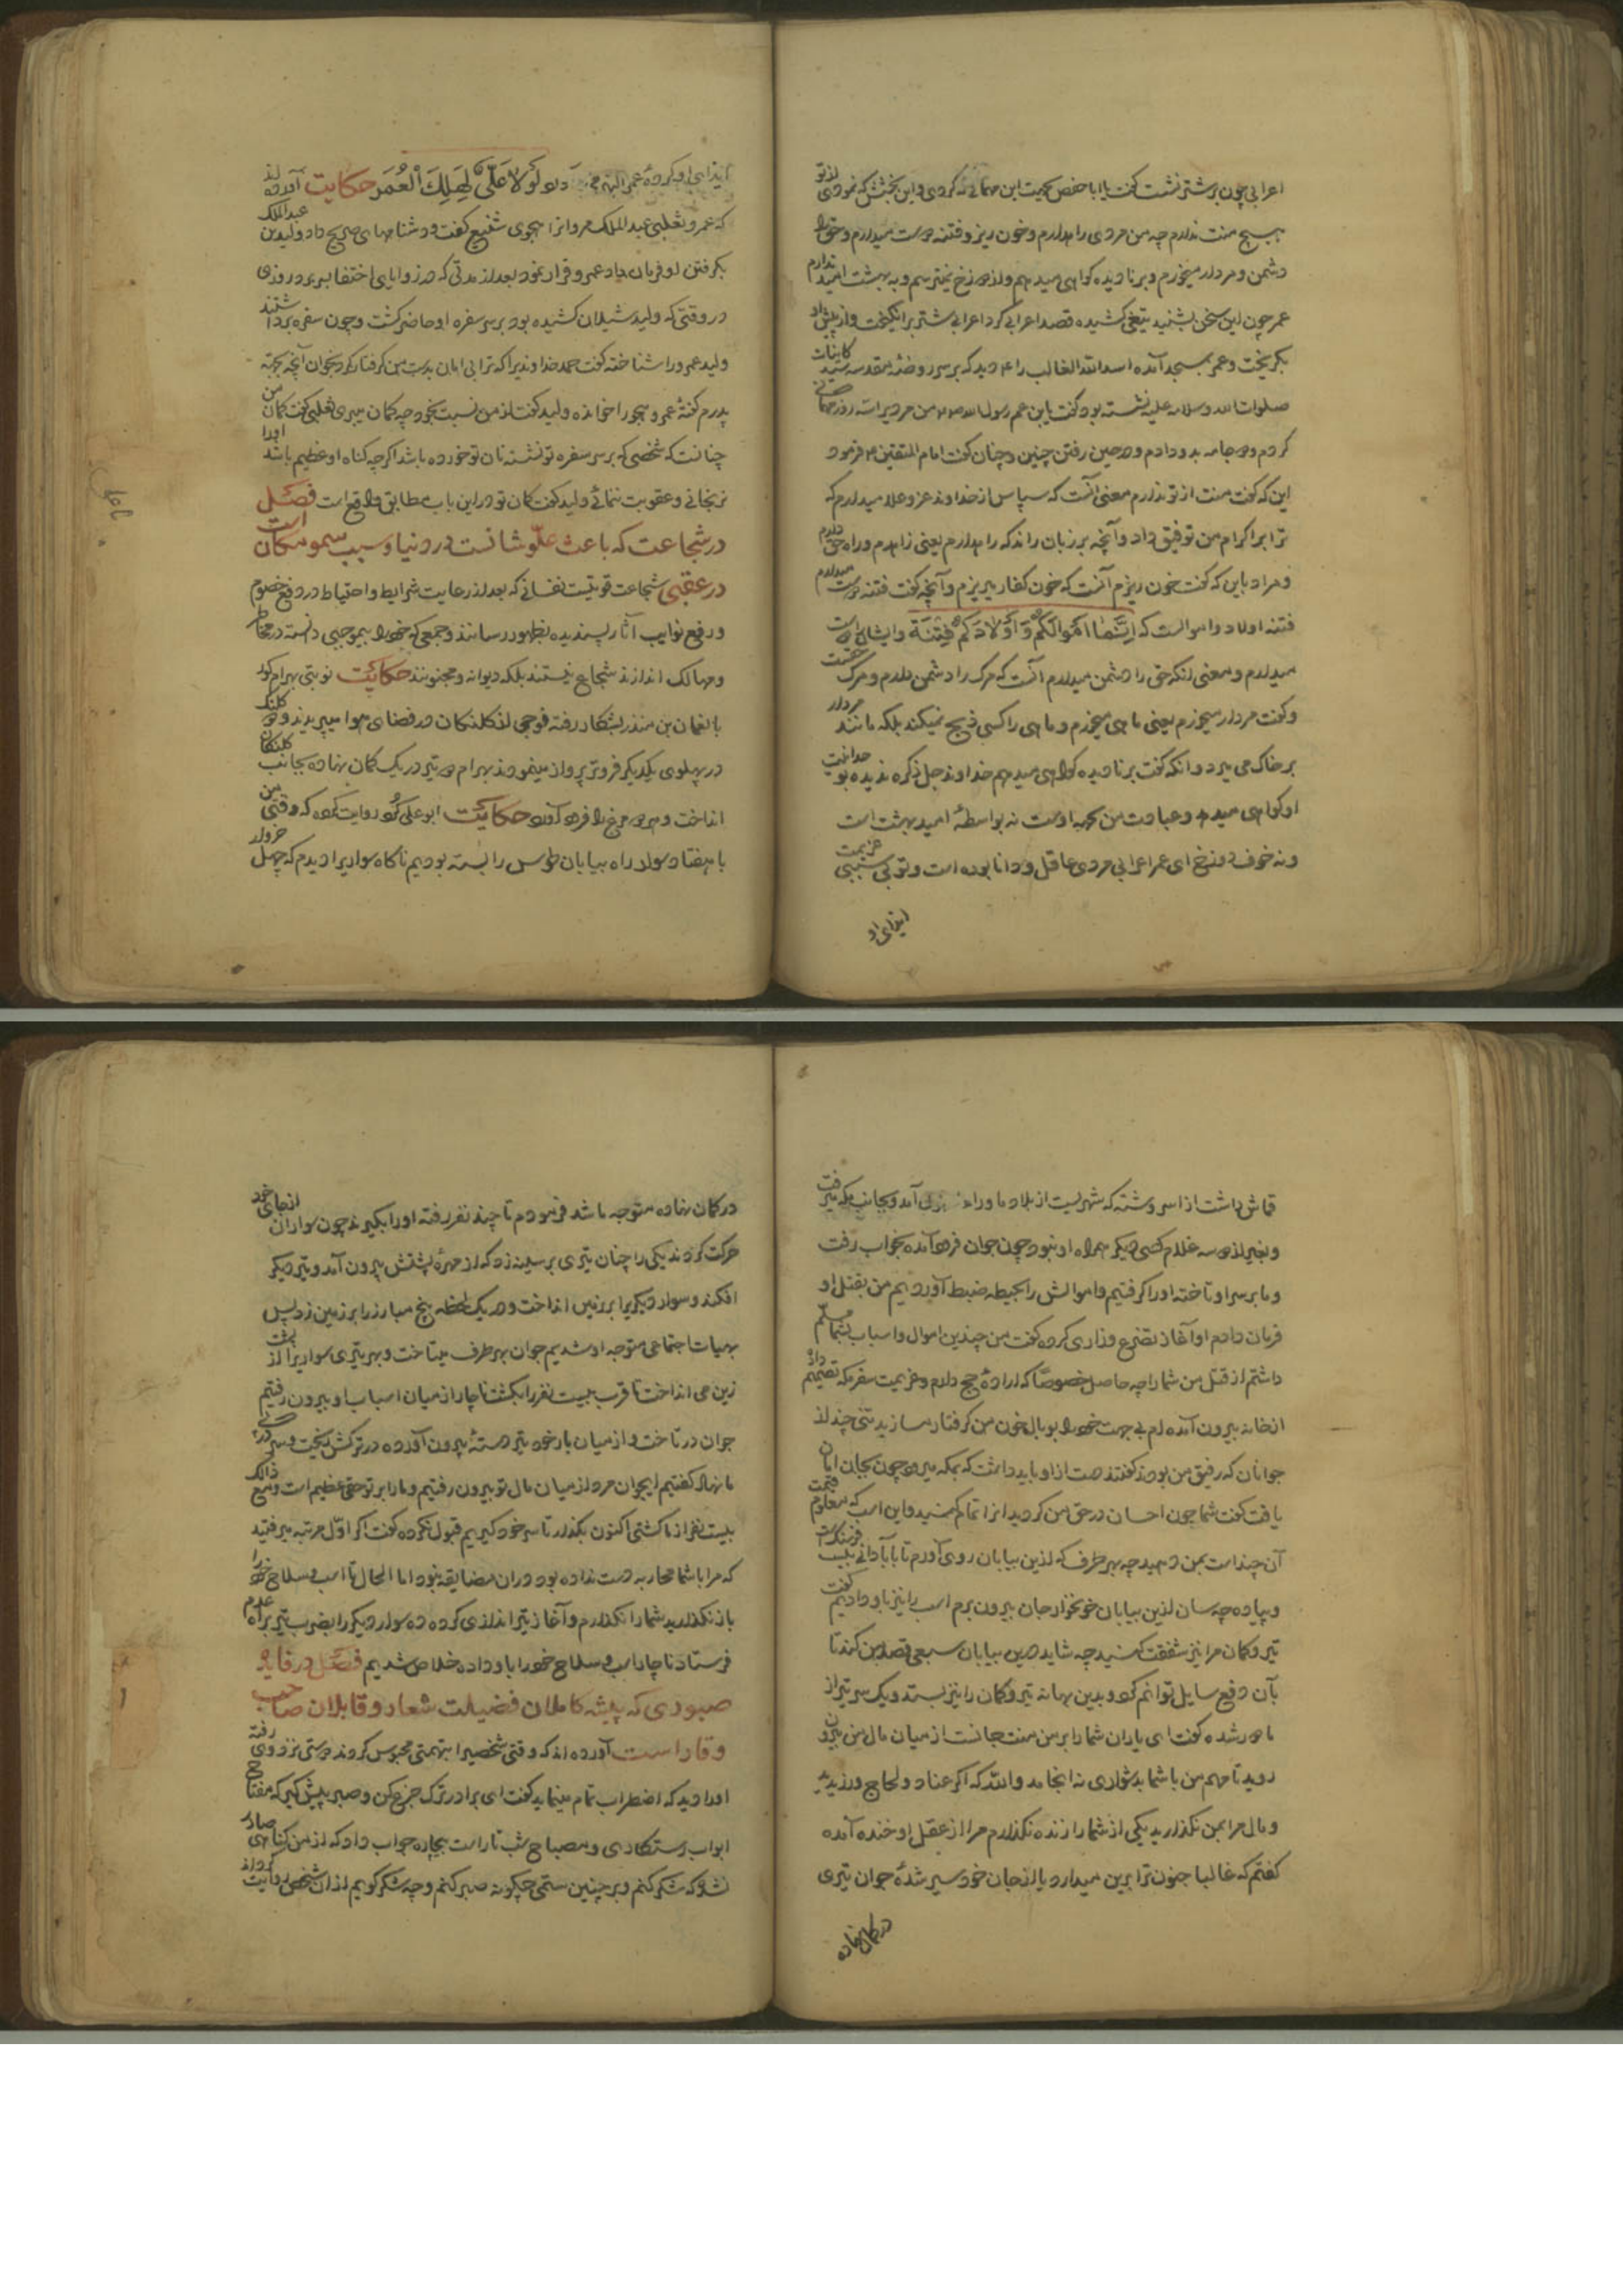 اعرابی چون بر شتر نشست گفت یا ابا حفص بجهت این مهمانی که کردی و این بخشش که نمودی از تو
هیچ منت ندارم چه من مردی راهدارم و خون ریز و فتنه دوست میدارم و حق را
دشمن و مردار میخورم و بر نادیده گواهی میدهم و از دوزخ نمیترسم و به بهشت امید ندارم
عمر چون این سخن بشنید تیغی کشیده قصد اعرابی کرد اعرابی شتر برانگیخت و از پیش او
بگریخت و عمر بمسجد آمده اسد الله الغالب را دید که بر سر روضه مقدسه سید کاینات
صلوات الله و سلامه علیه نشسته بود گفت یا بن عم رسول الله من مردیرا سه روز مهمانی
کردم و ده جامه بدو دادم و در حین رفتن چنین و چنان گفت امام المتقین فرمود
این که گفت منت از تو ندارم معنی آنست که سپاس از خداوند عز و علا میدارم که
ترا بر اکرام من توفیق داد و آنچه بر زبان راند که راهدارم یعنی زاهدم و راه حق دارم
و مراد باین که گفت خون ریزم آنست که خون کفار میریزم و آنچه گفت فتنه دوست میدارم
فتنه اولاد و اموالست که اِنَّمٰا اَمْوالَكُمْ وَ اَوْلادَكُمْ فِتْنَة و ایشان را دوست
میدارم و معنی انکه حق را دشمن میدارم آنست که مرک را دشمن دارم و مرک حقست
و گفت مردار میخورم یعنی ماهی میخورم و ماهی را کسی ذبح نمیکند بلکه مانند مردار
بر خاک می میرد و انکه گفت بر نادیده گواهی میدهم خداوند جل ذکره ندیده بوحدانیت
او گواهی میدهد و عبادت من بجهه اوست نه بواسطهٔ امید بهشت است
و نه خوف دوزخ ای عمر اعرابی مردی عاقل و دانا بوده است و تو بی سببی عزیمت
ایذای او
ایذای او کرده عمر لو لا عَلیٌّ لَهَلِكَ الْعُمَر حکایت آورده اند
که عمرو ثعلبی عبد الملک مروانرا هجوی شنیع گفت و دشنامهای صریح داد ولید بن عبد الملک
بگرفتن او فرمان داد عمرو فرار نمود بعد از مدتی که در زوایای اختفا بسر برد روزی
در وقتی که ولید شیلان کشیده بود بر سر سفره او حاضر گشت و چون سفره برداشتند
ولید عمرو را شناخته گفت حمد خداوندیرا که ترا بی امان بدست من گرفتار کرد بخوان آنچه بجهته
پدرم گفتهٔ عمرو هجو را خوانده ولید گفت از من نسبت بخود چه گمان میبری ثعلبی گفت گمان من
چنانست که شخصی که بر سر سفره تو نشسته نان تو خورده باشد اگر چه گناه او عظیم باشد او را
نرنجانی و عقوبت ننمائی ولید گفت گمان تو در این باب مطابق واقع است فصل
در شجاعت که باعث علّو شانست در دنیا و سبب سمو مکان است
در عقبی شجاعت قوتیست نفسانی که بعد از رعایت شرایط و احتیاط در دفع خصوم
و رفع نوایب آثار پسندیده بظهور رسانند و جمعی که خود را بیموجبی دانسته در مخاطر
و مهالک اندازند شجاع نیستند بلکه دیوانه و مجنونند حکایت نوبتی بهرام گور
با نعمان بن منذر بشکار رفته فوجی از کلنکان در فضای هوا میپریدند و دو کلنک
در پهلوی یکدیگر فروتر پرواز مینمودند بهرام دو تیر در یک کمان نهاده بجانب کلنکان
انداخت و هر دو مرغ را فرود آورد حکایت ابو علی کرد روایت کرده که وقتی من
با هفتاد سوار راه بیابان طوس را بسته بودیم ناگاه سواریرا دیدم که چهل خروار
قماش داشت از اسروشنه که شهریست از بلاد ماورا آمد و بجانب مکه میرفت
و بغیر از دو سه غلام کسی دیگر همراه او نبود چون جوان فرود آمده بخواب رفت
و ما بر سر او تاخته او را گرفتیم و اموالش را بحیطه ضبط آوردیم من بقتل او
فرمان دادم او آغاز تضرع و زاری کرده گفت من چندین اموال و اسباب بشما مسلّم
داشتم از قتل من شما را چه حاصل خصوصًا که ارادهٔ حج دارم و عزیمت سفر مکه تصمیم داده
از خانه بیرون آمده ام بی جهت خود را بوبال خون من گرفتار مسازید تنی چند از
جوانان که رفیق من بودند گفتند دست از او باید داشت که بمکه میرود چون بجان امان
یافت گفت شما چون احسان در حق من کردید انرا تمام کنید و این اسب که قیمت معلوم
آن چند است بمن دهید چه بهر طرف که ازین بیابان روی آورم تا بآبادانی بیست فرسنگ است
و پیاده چه سان ازین بیابان خونخوار جان بیرون برم اسب را نیز باو دادیم گفت
تیر و کمان مرا نیز شفقت کنید چه شاید درین بیابان سبعی قصد من کند تا
بآن دفع سایل توانم کرد و بدین بهانه تیر و کمان را نیز بستد و یک سر تیر از
ما دور شده گفت ای یاران شما را بر من منت جانست از میان مال من بیرون
روید تا مهم من با شما بدشواری نه انجامد و الله که اگر عناد و لجاج ورزیدید
و مال مرا بمن نگذارید یکی از شما را زنده نگذارم مرا از عقل او خنده آمده
گفتم که غالبا جنون ترا برین میدارد یا از جان خود سیر شدهٔ جوان تیری
در کمان نهاده
در کمان نهاده متوجه ما شد فرمودم تا چند نفر رفته او را بگیرند چون سواران از جای خود
حرکت کردند یکی را چنان تیری بر سینه زد که از مهرهٔ پشتش بیرون آمد و تیر دیگر
افکند و سوار دیگریرا بر زمین انداخت و در یک لحظه پنج مبارز را بر زمین زد پس
بهیات اجتماعی متوجه او شدیم جوان بهر طرف میتاخت و بهر تیری سواریرا از پشت
زین می انداخت تا قرب بیست نفر را بکشت ناچار از میان اسباب او بیرون رفتیم
جوان در تاخت و از میان بار خود تیر دستهٔ بیرون آورده در ترکش ریخت و سر در پی
ما نهاد گفتیم ایجوان مرد از میان مال تو بیرون رفتیم و ما را بر تو حقی عظیم است و مع ذالک
بیست نفر از ما کشتی اکنون بگذار تا سر خود گیریم قبول نکرده گفت اگر اوّل مرتبه میرفتید
که مرا با شما محاربه دست نداده بود در ان مضایقه نبود اما الحال تا اسب و سلاح خود را
باز نگذارید شما را نگذارم و آغاز تیر اندازی کرده ده سوار دیگر را بضرب تیر براه عدم
فرستاد ناچار اسب و سلاح خود را باو داده خلاص شدیم فصل در فایدهٔ
صبوری که پیشه کاملان فضیلت شعار و قابلان صاحب
وقار است آورده اند که وقتی شخصیرا بتهمتی محبوس کردند دوستی نزد وی رفته
او را دید که اضطراب تمام مینماید گفت ای برادر ترک جزع کن و صبر پیش گیر که مفتاح
ابواب رستکاری و مصباح شب تار است بیچاره جواب داد که از من گناهی صادر
نشد که شکر کنم و بر چنین ستمی چگونه صبر کنم و چه شکر گویم از ان شخص روایت کرده اند